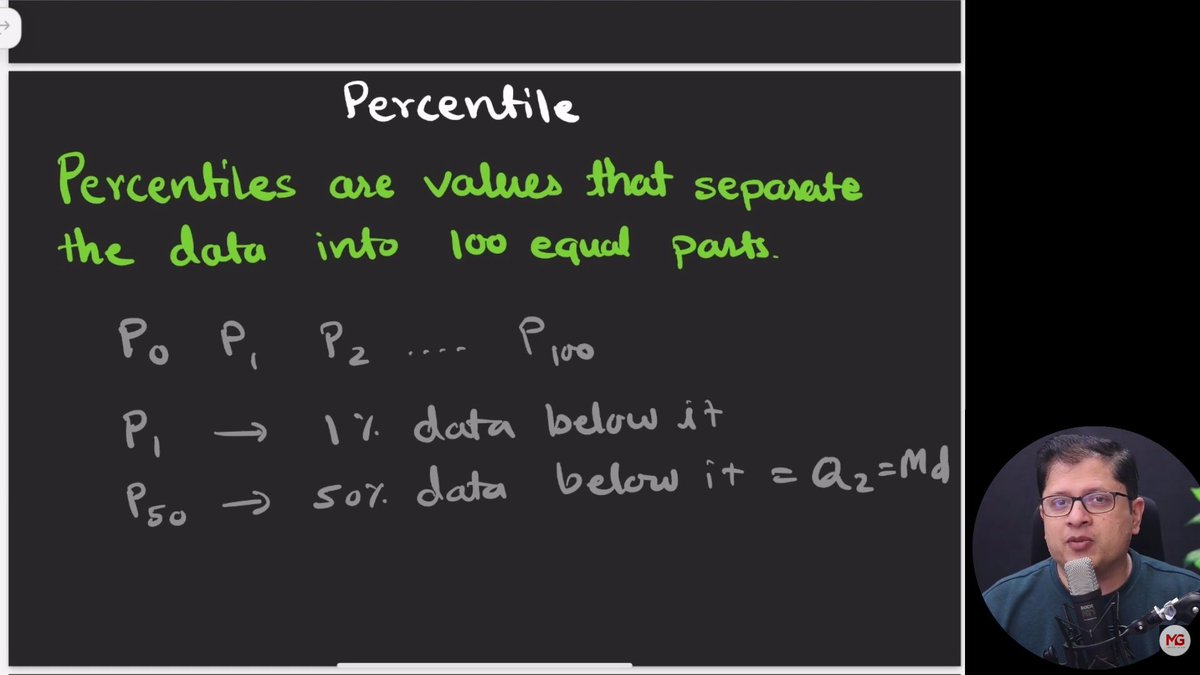 Percentile
Percentiles are values that separate
the data into 100 equal parts.
P₀ P₁ P₂ ..... P₁₀₀
P₁ → 1% data below it
P₅₀ → 50% data below it = Q₂ = Md
RODE
MG